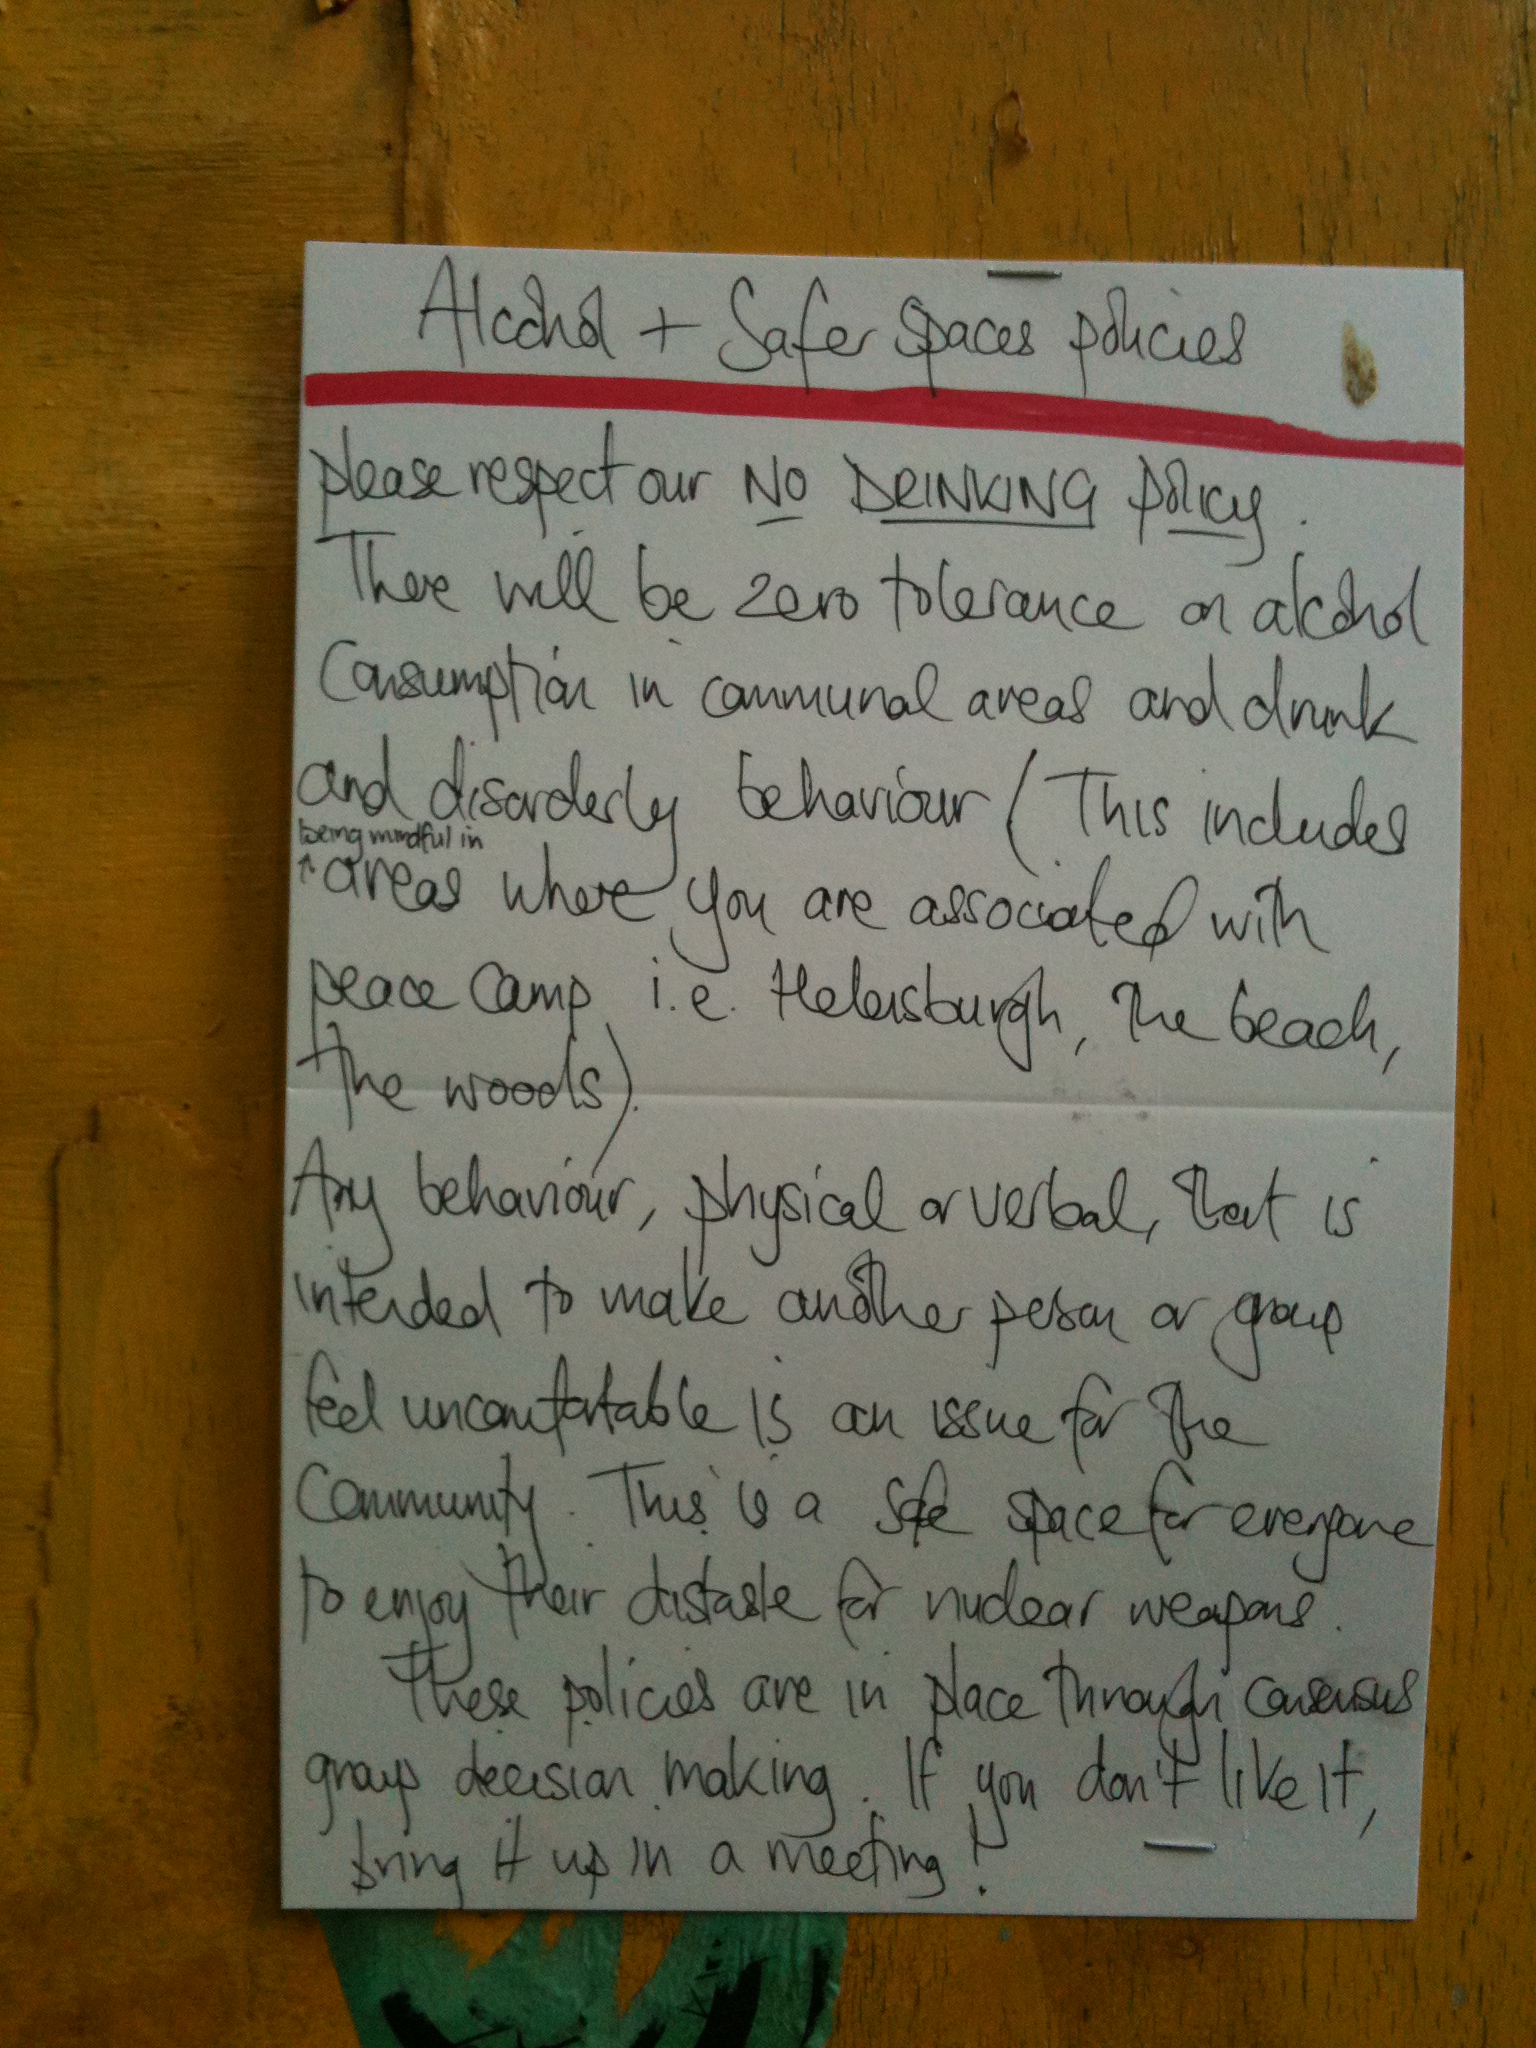 Alcohol + Safer Spaces policies
please respect our NO DRINKING policy.
There will be zero tolerance on alcohol
Consumption in communal areas and drunk
and disorderly behaviour (This includes
being mindful in
↑ areas where you are associated with
peace camp i.e. Helensburgh, the beach,
the woods).
Any behaviour, physical or verbal, that is
intended to make another person or group
feel uncomfortable is an issue for the
Community. This is a safe space for everyone
to enjoy their distaste for nuclear weapons.
These policies are in place through consensus
group decision making. If you don't like it,
bring it up in a meeting!